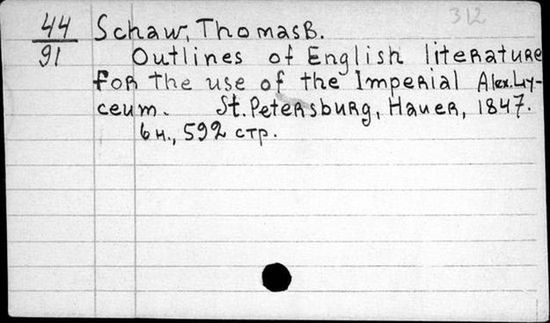 312
44 Schaw, Thomas B.
91 Outlines of English literature
for the use of the Imperial Alex. Ly-
ceum. St. Petersburg, Hauer, 1847.
6 н., 592 стр.